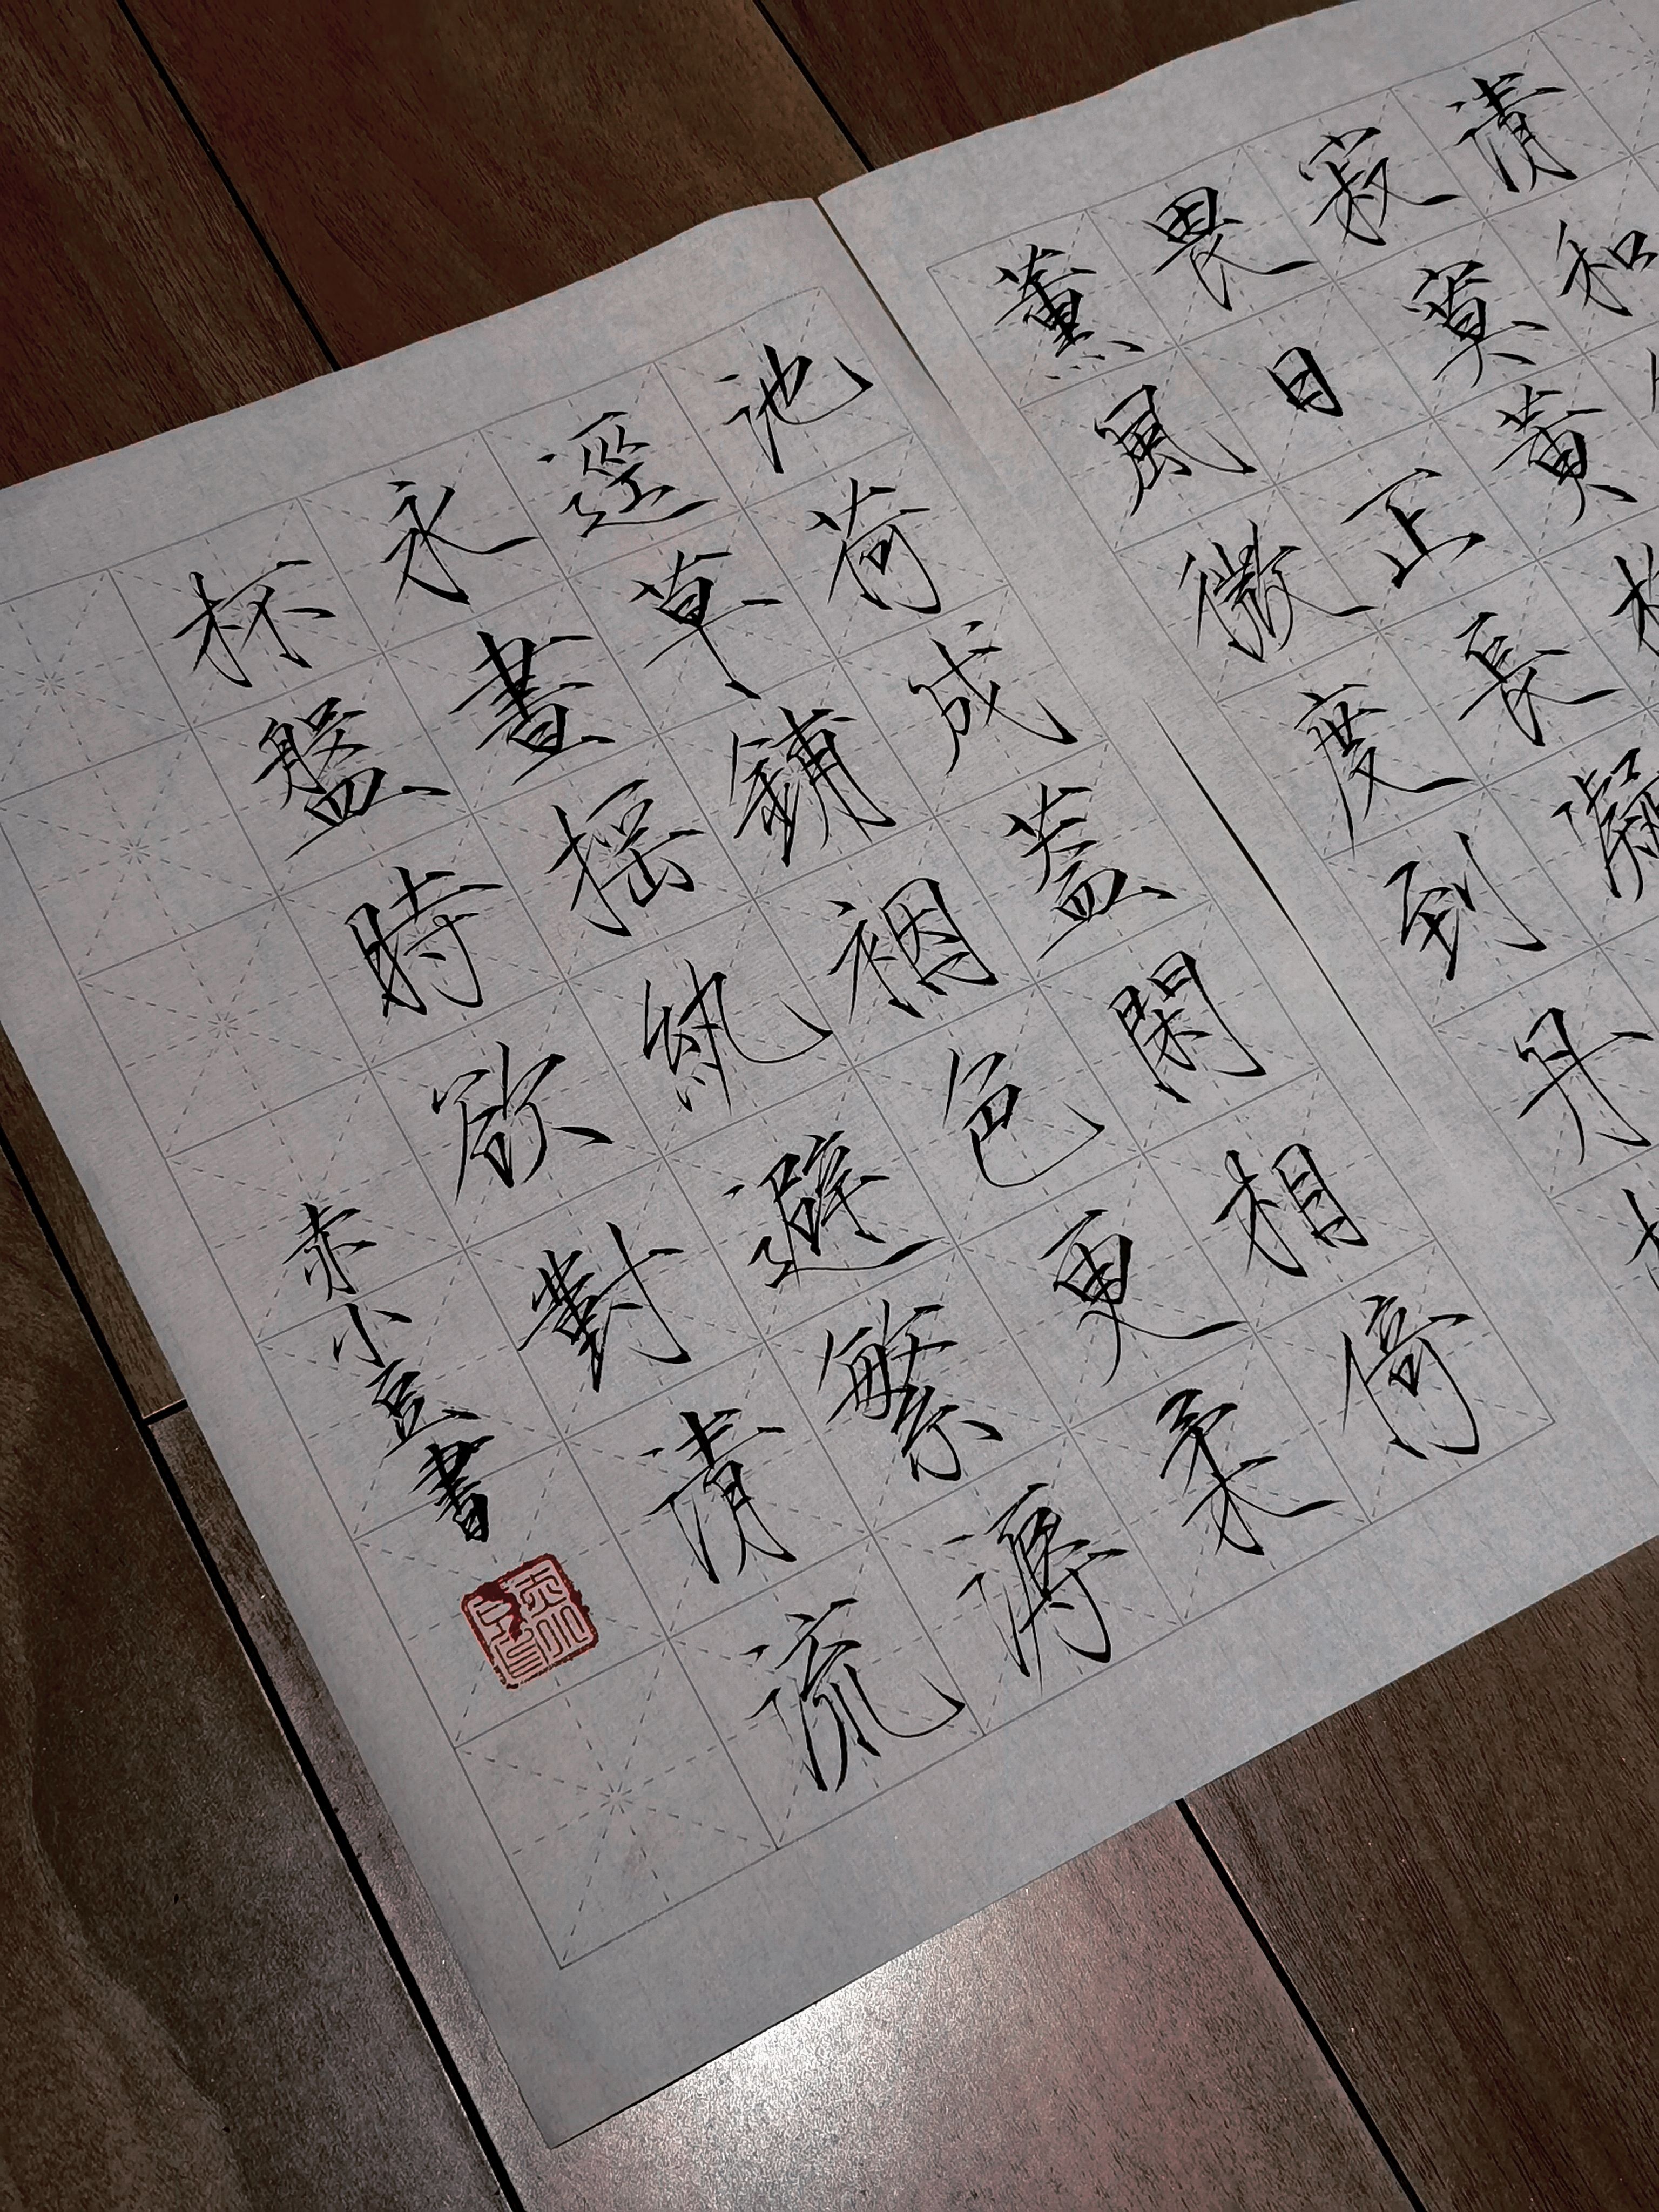 清和
寂寞黃
畏日正長凝
薰風微度到丹
池荷成蓋閑相倚
逕草鋪裀色更柔
永晝搖紈避繁溽
杯盤時欲對清流
赤小豆書